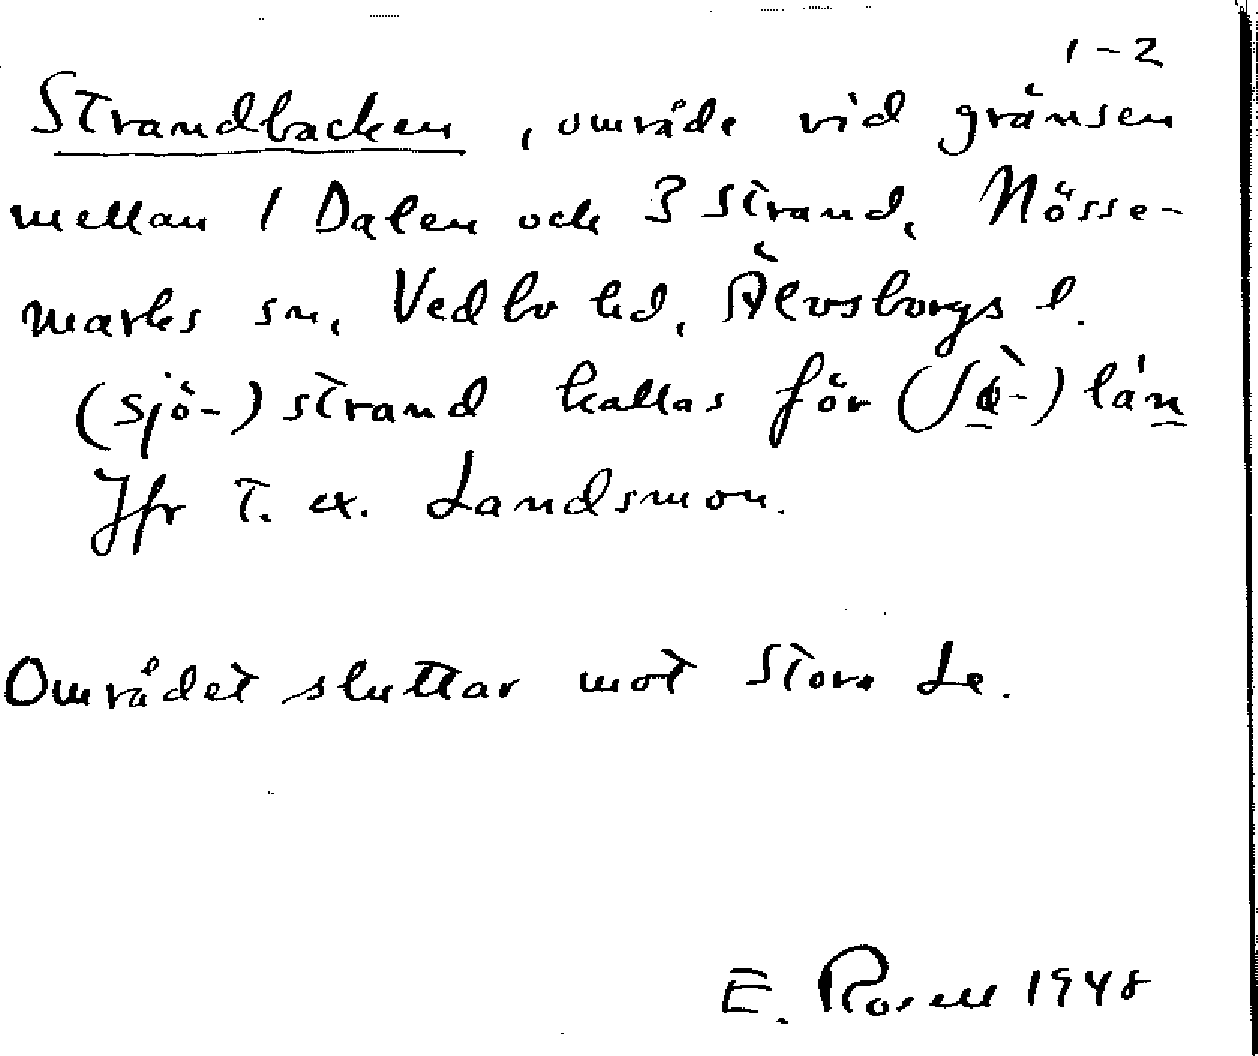 1-2
Strandbacken, område vid gränsen
mellan 1 Dalen och 3 Strand, Nösse-
marks sn, Vedbo hd, Älvsborgs l.
(sjö-) strand kallas för lán
Jfr t. ex. Landsmon.
Området sluttar mot Stora Le.
E. Rosell 1948